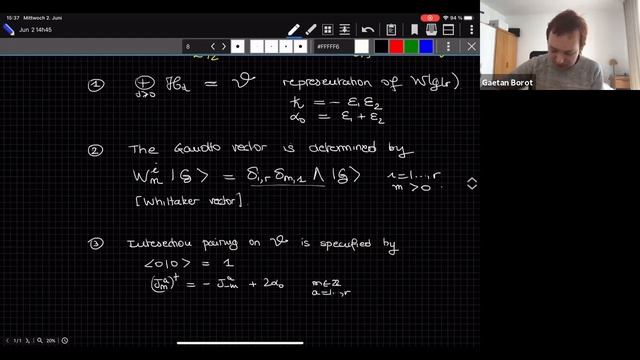 15:37 Mittwoch 2. Juni
94 %
Jun 2 14h45
8
#FFFFF6
Gaetan Borot
① ⊕ d≥0 ℋ_d ≃ 𝒱 representation of W(gl_r)
ℏ = − ε₁ε₂
α₀ = ε₁ + ε₂
② The Gaiotto vector is determined by
W^i_m |G> = δ_{i,r} δ_{m,1} Λ |G> i=1...,r
m > 0
[Whittaker vector]
③ Intersection pairing on 𝒱 is specified by
<0|0> = 1
(J^a_m)^† = − J^a_{-m} + 2α₀ m∈ℤ
a=1..,r
1/1
20%